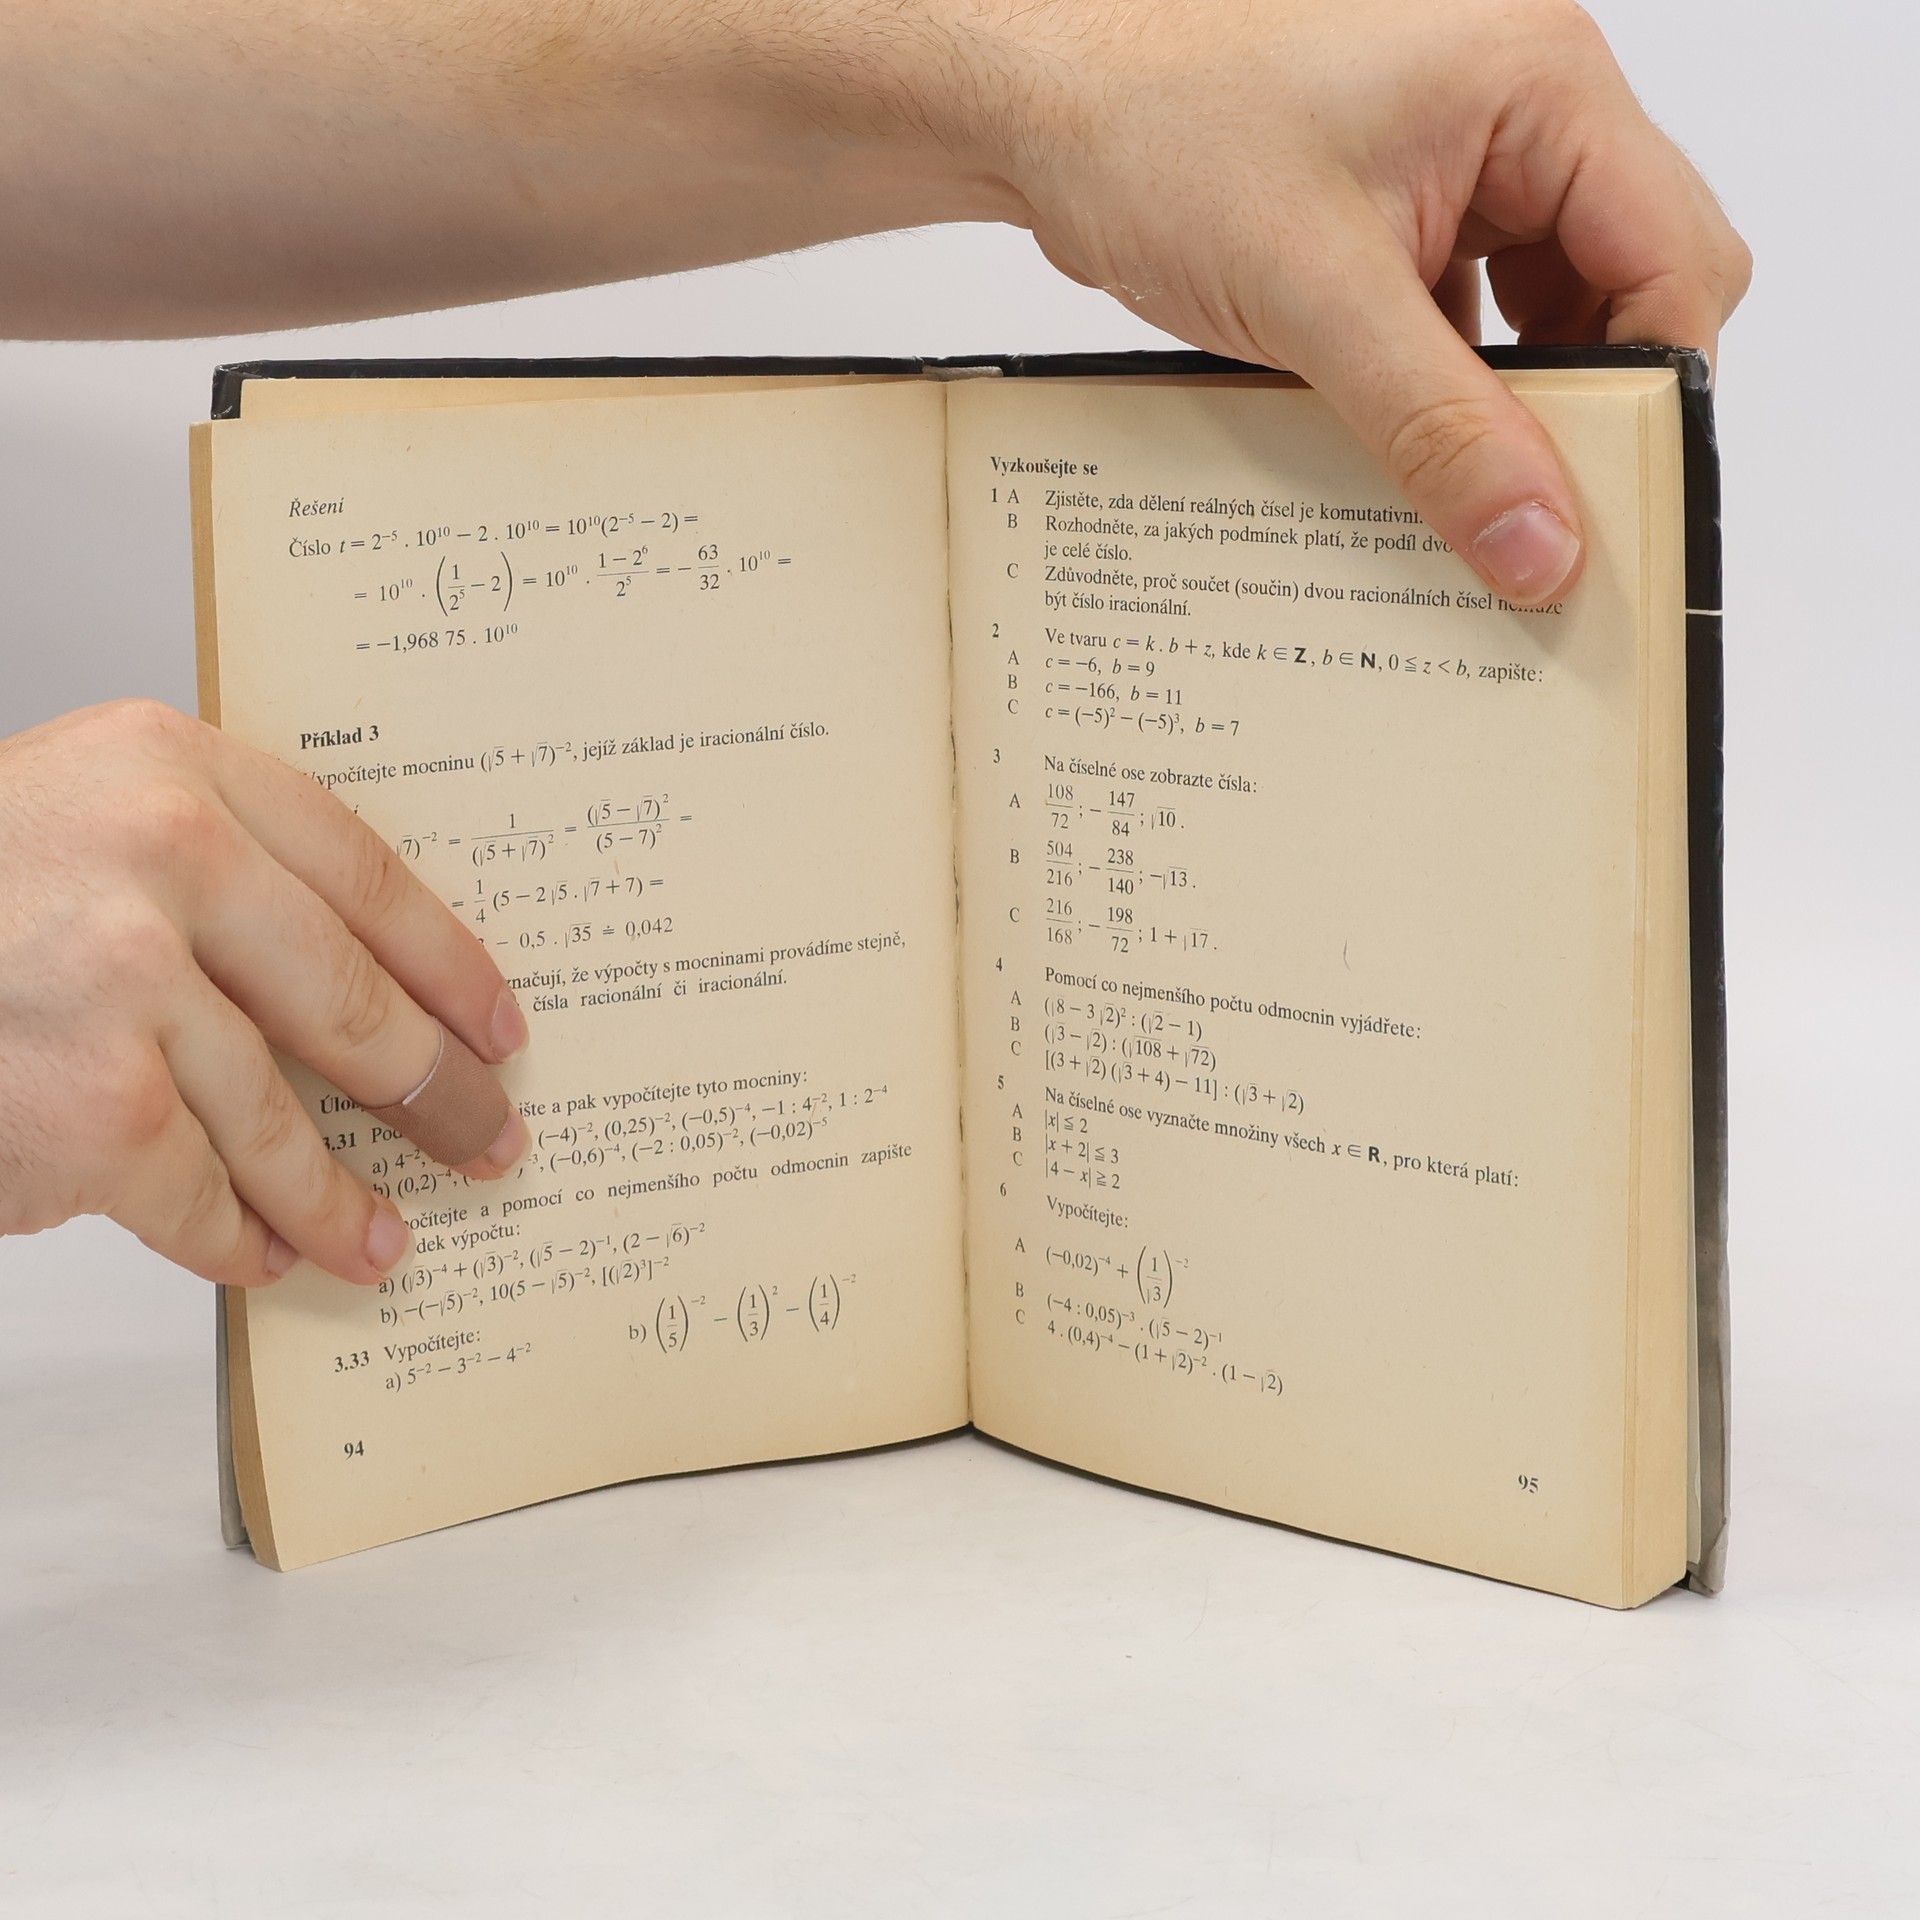 Řešení
Číslo t = 2⁻⁵ . 10¹⁰ − 2 . 10¹⁰ = 10¹⁰(2⁻⁵ − 2) =
= 10¹⁰ . (1/2⁵ − 2) = 10¹⁰ . (1 − 2⁶)/2⁵ = − 63/32 . 10¹⁰ =
= −1,968 75 . 10¹⁰
Příklad 3
mocninu (√5 + √7)⁻², jejíž základ je iracionální číslo.
√7)⁻² = 1/(√5 + √7)² = (√5 − √7)²/(5 − 7)² =
= 1/4 (5 − 2√5 . √7 + 7) =
− 0,5 . √35 ≐ 0,042
že výpočty s mocninami provádíme stejně,
čísla racionální či iracionální.
a pak vypočítejte tyto mocniny:
3.31
a) 4⁻², (−4)⁻², (0,25)⁻², (−0,5)⁻⁴, −1 : 4⁻², 1 : 2⁻⁴
b) (0,2)⁻⁴, (−0,6)⁻⁴, (−2 : 0,05)⁻², (−0,02)⁻⁵
a pomocí co nejmenšího počtu odmocnin zapište
výpočtu:
a) (√3)⁻⁴ + (√3)⁻², (√5 − 2)⁻¹, (2 − √6)⁻²
b) −(−√5)⁻², 10(5 − √5)⁻², [(√2)³]⁻²
3.33 Vypočítejte:
a) 5⁻² − 3⁻² − 4⁻² b) (1/5)⁻² − (1/3)² − (1/4)⁻²
94
Vyzkoušejte se
1 A Zjistěte, zda dělení reálných čísel je komutativní.
B Rozhodněte, za jakých podmínek platí, že podíl
je celé číslo.
C Zdůvodněte, proč součet (součin) dvou racionálních čísel
být číslo iracionální.
2 Ve tvaru c = k . b + z, kde k ∈ Z, b ∈ N, 0 ≦ z < b, zapište:
A c = −6, b = 9
B c = −166, b = 11
C c = (−5)² − (−5)³, b = 7
3 Na číselné ose zobrazte čísla:
A 108/72 ; − 147/84 ; √10 .
B 504/216 ; − 238/140 ; −√13 .
C 216/168 ; − 198/72 ; 1 + √17 .
4 Pomocí co nejmenšího počtu odmocnin vyjádřete:
A (√8 − 3√2)² : (√2 − 1)
B (√3 − √2) : (√108 + √72)
C [(3 + √2) (√3 + 4) − 11] : (√3 + √2)
5 Na číselné ose vyznačte množiny všech x ∈ R, pro která platí:
A |x| ≦ 2
B |x + 2| ≦ 3
C |4 − x| ≧ 2
6 Vypočítejte:
A (−0,02)⁻⁴ + (1/√3)⁻²
B (−4 : 0,05)⁻³ . (√5 − 2)⁻¹
C 4 . (0,4)⁻⁴ − (1 + √2)⁻² . (1 − √2)
95